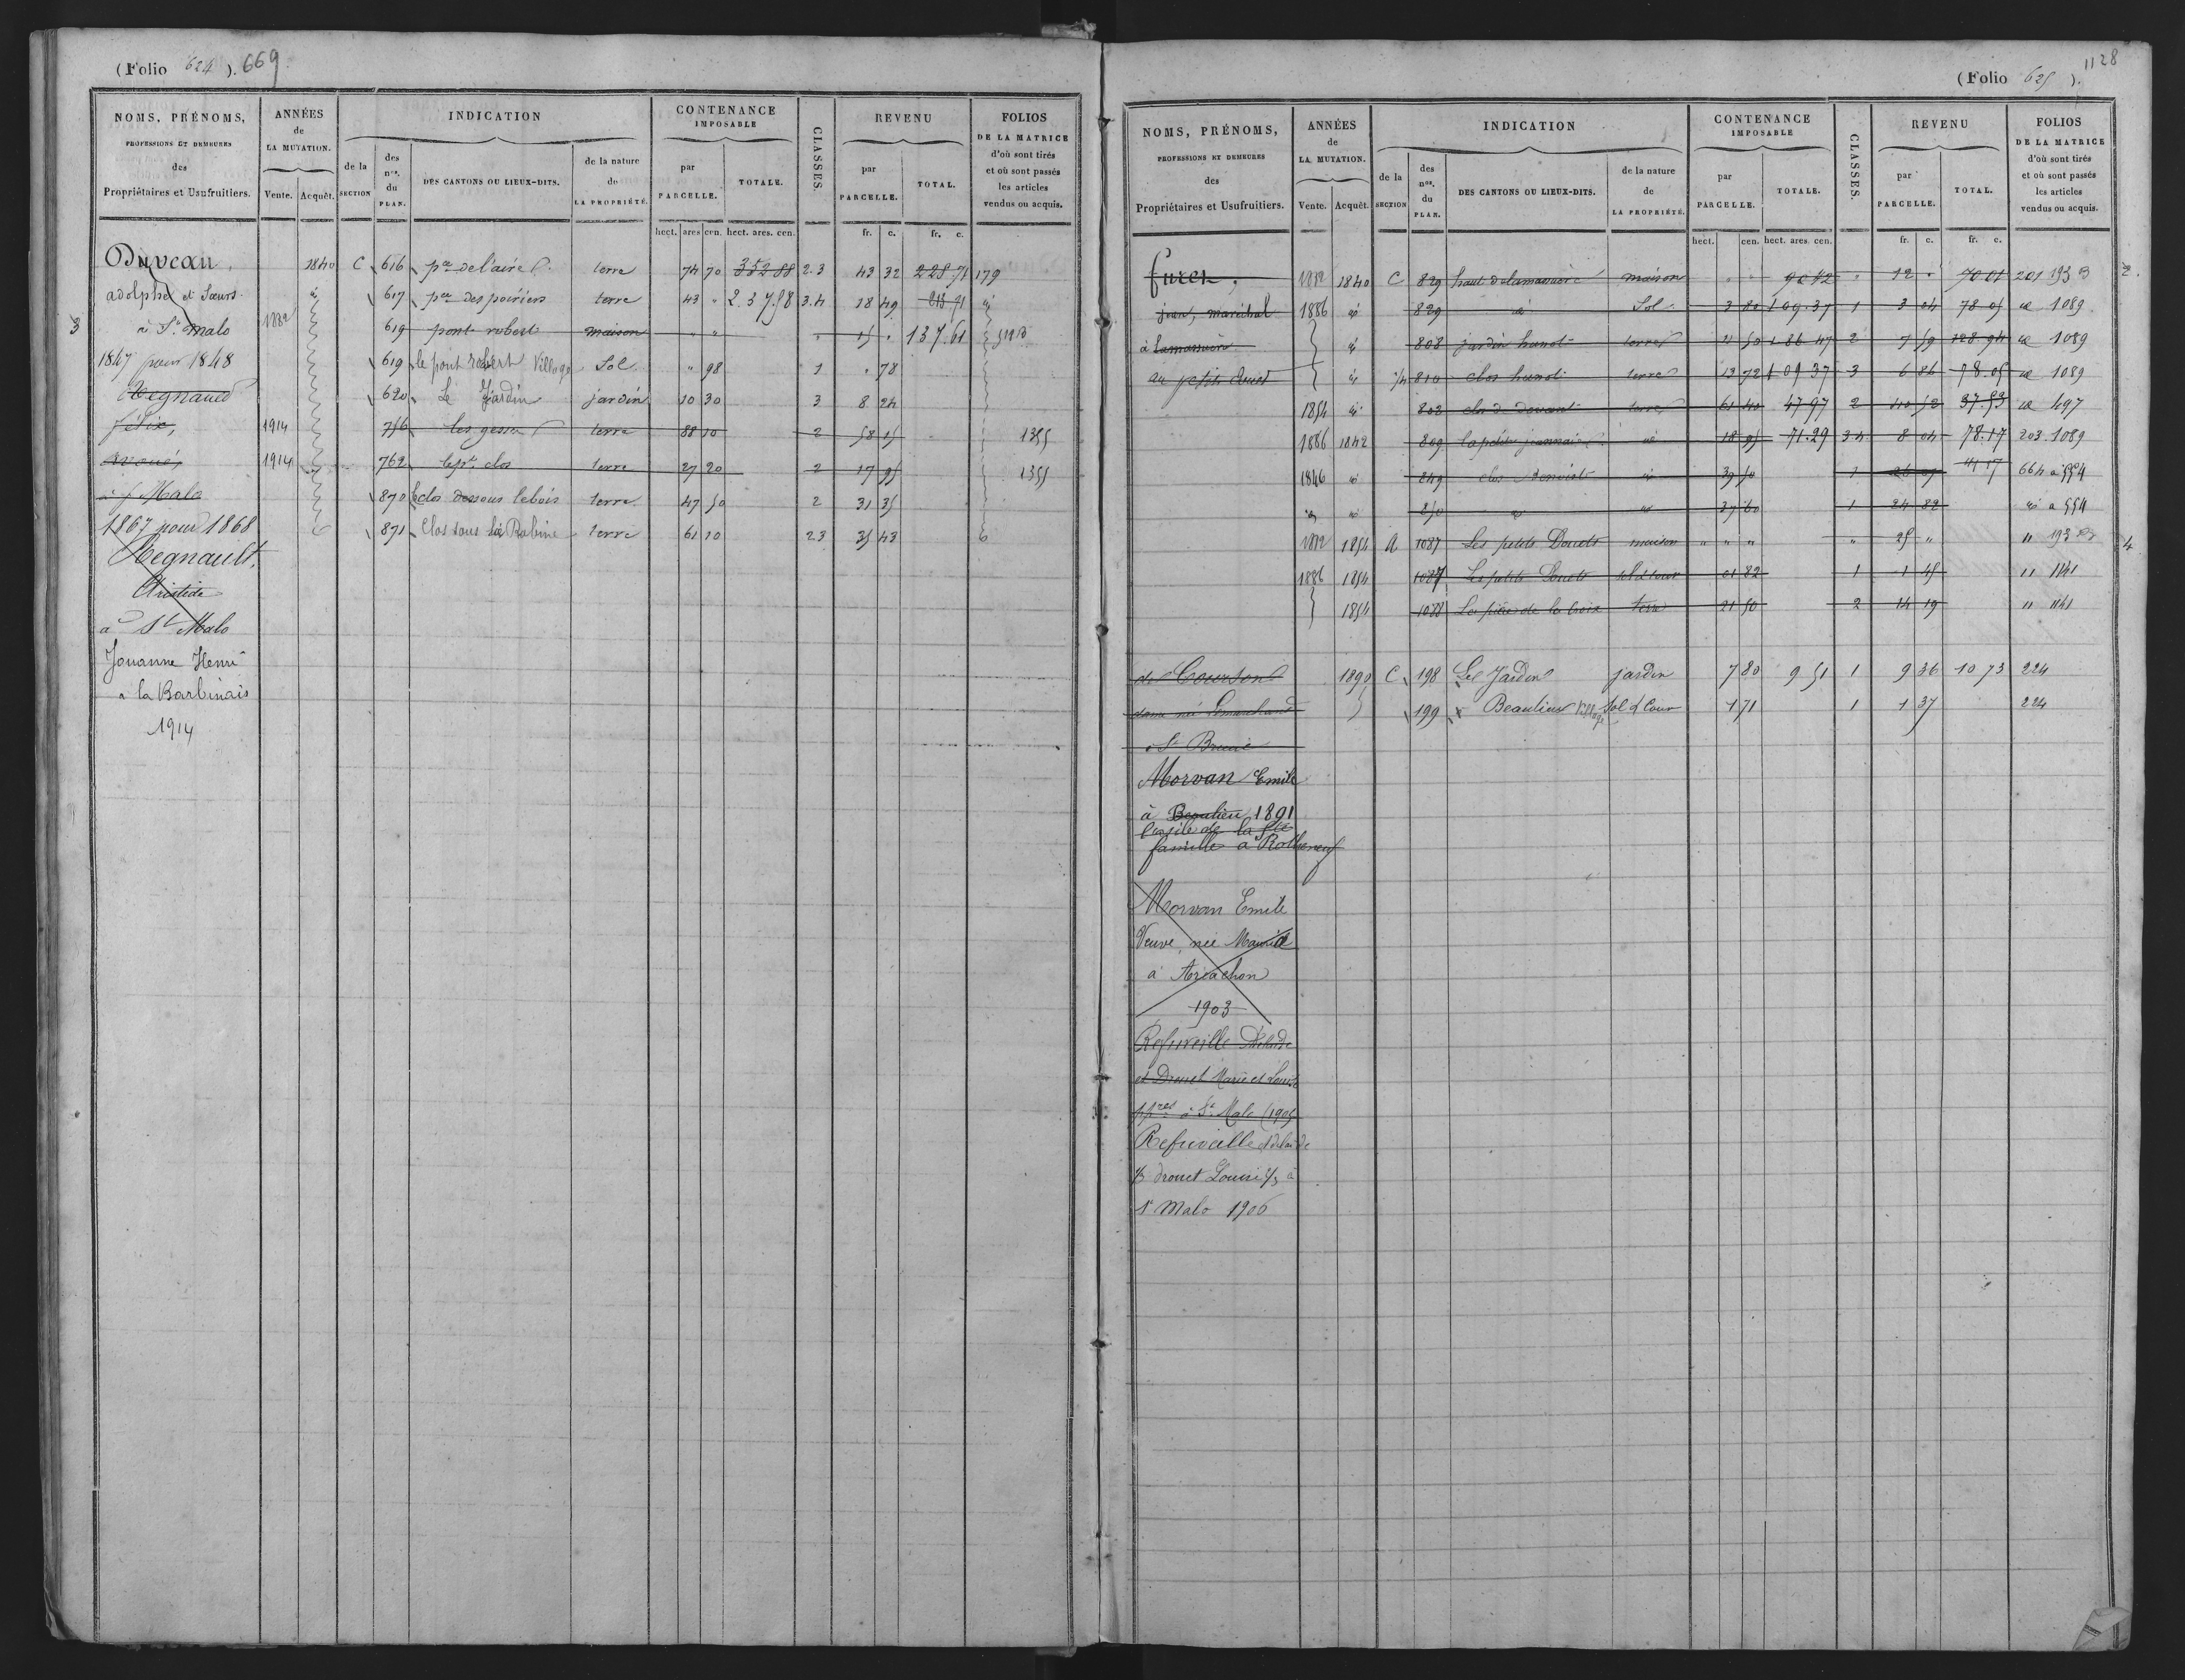 (Folio 624). 669
NOMS, PRÉNOMS, PROFESSIONS ET DEMEURES des Propriétaires et Usufruitiers.
ANNÉES de LA MUTATION. Vente. Acquêt.
INDICATION de la SECTION des nos. du PLAN. DES CANTONS OU LIEUX-DITS. de la nature de LA PROPRIÉTÉ.
CONTENANCE IMPOSABLE par PARCELLE. TOTALE.
CLASSES.
REVENU par PARCELLE. TOTAL.
FOLIOS DE LA MATRICE d'où sont tirés et où sont passés les articles vendus ou acquis.
hect. ares cen. hect. ares. cen. fr. c. fr. c.
Duveau, 1840 C 616 pce de l'aire terre 74 70 352 88 2.3 43 32 228 71 179
adolphe et Sœurs id 617 pce des poiriers terre 43 " 2.37.58 3.4 18 49 213 71 id
à St malo 1882 619 pont robert maison " " " 15 " 137.61
1847 pour 1848 619 le pont robert Village Sol " 98 1 " 78
Regnaued 620 Le Jardin jardin 10 30 3 8 24
félix, 1914 756 les gesses terre 88 10 2 58 15 1355
avoué, 1914 762 le pt. clos terre 27 20 2 17 95 1355
à St Malo 870 le clos dessous le bois terre 47 50 2 31 35
1867 pour 1868 871 Clos sous la Robine terre 61 10 23 35 43
Regnault,
Aristide
à St Malo
Jouanne Henri
à la Barbinais
1914
3
1128
(Folio 625).
NOMS, PRÉNOMS, PROFESSIONS ET DEMEURES des Propriétaires et Usufruitiers.
ANNÉES de LA MUTATION. Vente. Acquêt.
INDICATION de la SECTION des nos. du PLAN. DES CANTONS OU LIEUX-DITS. de la nature de LA PROPRIÉTÉ.
CONTENANCE IMPOSABLE par PARCELLE. TOTALE.
CLASSES.
REVENU par PARCELLE. TOTAL.
FOLIOS DE LA MATRICE d'où sont tirés et où sont passés les articles vendus ou acquis.
hect. cen. hect. ares. cen. fr. c. fr. c.
1882 1840 C 829 haut de lamassuère maison " " 90 42 " 12 " 70 01 201 193 B 2
jean, maréchal 1886 id 829 id Sol 3 80 1 09.37 1 3 04 78 05 id 1089
à lamassuère id 808 jardin hunot terre 11 50 1 86 47 2 7 59 128.94 id 1089
au petit douet id 810 clos hunot terre 13 72 1 09 37 3 6 86 78.05 id 1089
1854 id 802 clos de devant terre 61 40 47 97 2 40 52 37.53 id 497
1886 1842 809 id 18 95 71.29 3 4 8 04 78.17 203 1089
1846 id 249 clos id 39 50 1 26 07 664 à 554
id id 250 id id 37 60 1 24 82 id à 554
1882 1854 A 1087 Les petits Douets maison " " " " 25 " " 193 B 4
1886 1854 1087 Les petits Douets sol & cour 01 82 1 1 45 " 1141
1854 1088 La pièce de la Croix terre 21 50 2 14 19 " 1141
de Courson 1890 C 198 Le Jardin jardin 7 80 9 51 1 9 36 10 73 224
dame née Lemarchand 199 Beaulieu Village Sol & Cour 1 71 1 1 37 224
à St Brieuc
Morvan Emile
à Beaulieu 1891
l'asile de la Ste
famille à Rotheneuf
Morvan Emile
Veuve, née
à Arcachon
1903
Refuveille Adelaïde
et Drouet Marie et Louise
ppres à St Malo (1905
Refuveille Adelaïde
1/3 drouet Louise 2/3 à
St Malo 1906